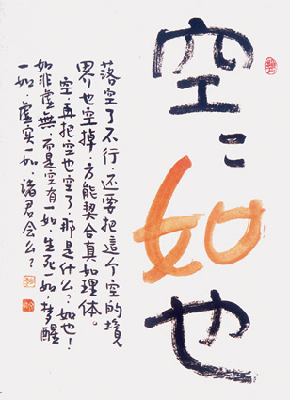 空〻如也
落空了不行，还要把這个空的境
界也空掉，方能契合真如理体。
空，再把空也空了，那是什么？如也！
如非虚無，而是空有一如，生死一如，梦醒
一如，虚实一如，诸君会么？